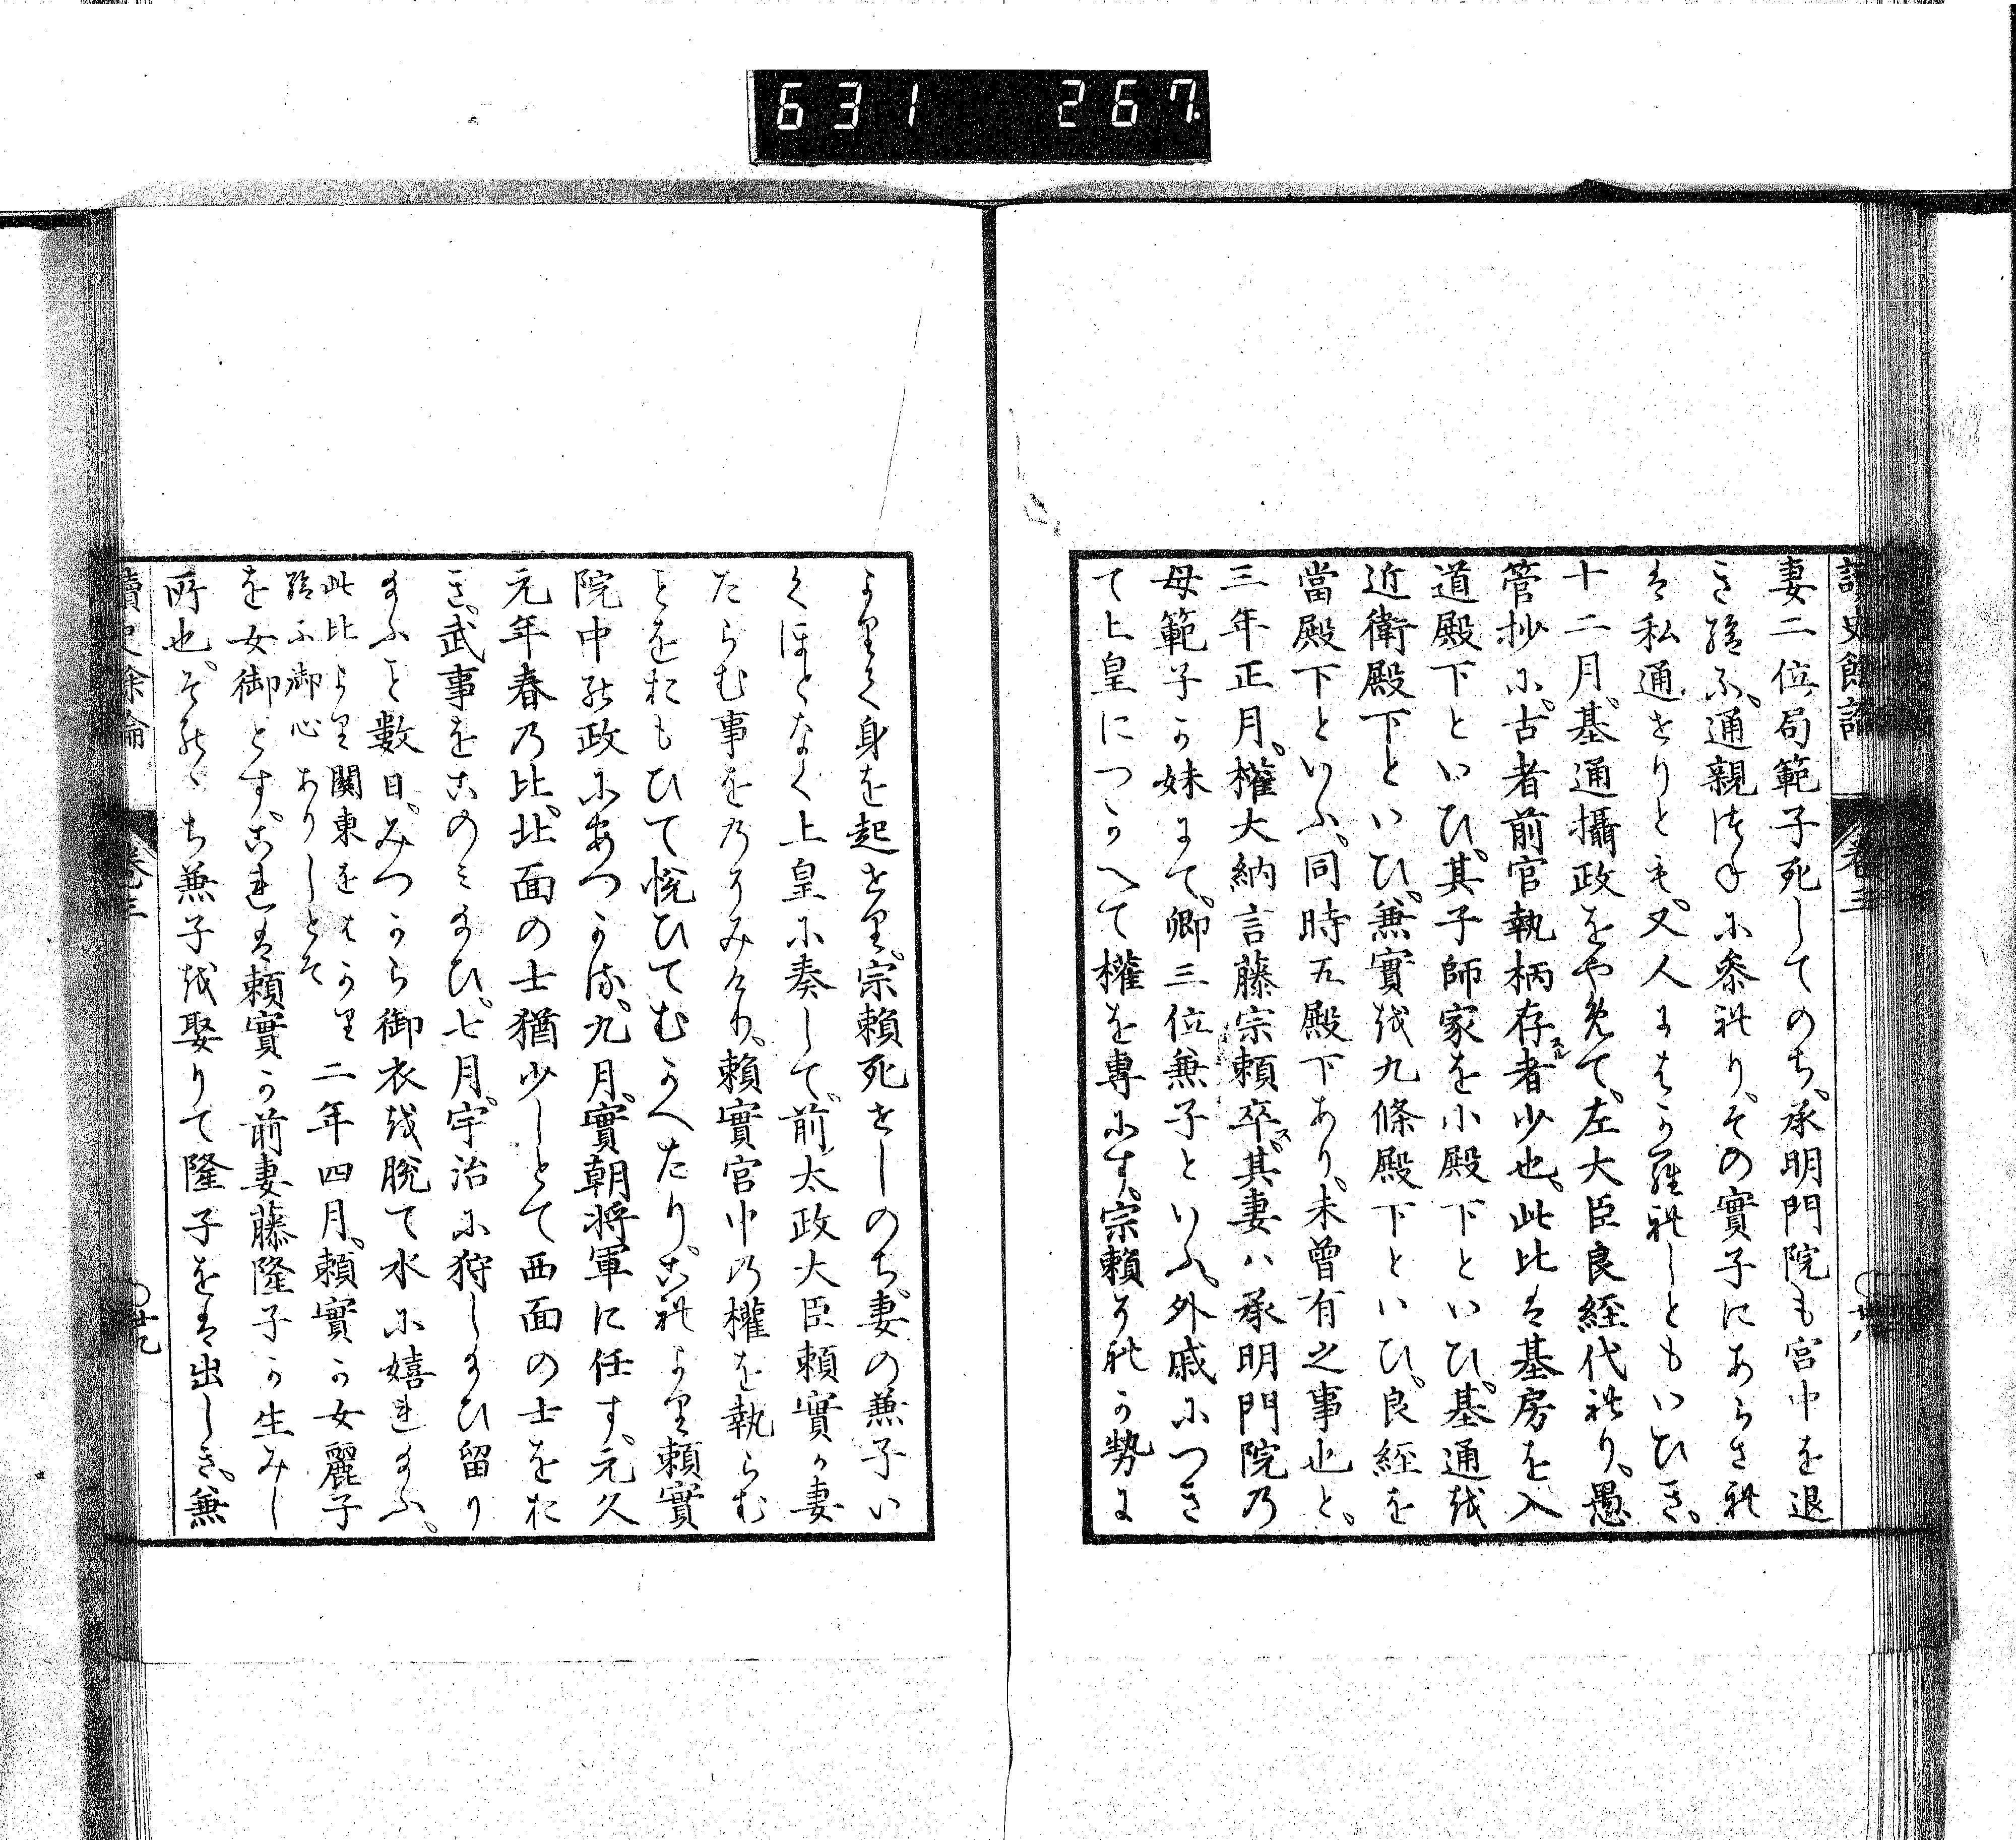 631 267
讀史餘論 卷三 廿八
妻二位局範子死してのち。承明門院も宮中を退
き給ふ。通親つねに參れり。その實子にあらされ
は私通せりとも。又人にはゝかられしともいひき。
十二月。基通攝政をやめて。左大臣良經代れり。愚
管抄に。古者前官執柄存スル者少也。此比は基房を入
道殿下といひ。其子師家を小殿下といひ。基通を
近衛殿下といひ。兼實を九條殿下といひ。良經を
當殿下といふ。同時五殿下あり。未曾有之事也と。
三年正月。權大納言藤宗頼卒ス。其妻ハ承明門院の
母範子か妹にて。卿三位兼子といふ。外戚につき
て上皇につかへて權を專にす。宗頼それか勢に
よりて身を起せり。宗頼死せしのち。妻の兼子い
くほとなく上皇に奏して。前太政大臣頼實か妻
たらむ事をのそみけり。頼實宮中の權を執らむ
とをおもひて悦ひてむかへたり。これより頼實
院中の政にあつかる。九月。實朝將軍に任す。元久
元年春の比。北面の士猶少しとて西面の士をお
き。武事をこのミ給ひ。七月。宇治に狩し給ひ留り
給ふと數日。みつから御衣を脱て水に嬉れ給ふ。
此比より關東をはかり
給ふ御心ありしとそ
二年四月。頼實か女麗子
を女御とす。これは頼實か前妻藤隆子か生みし
所也。そのゝち兼子を娶りて隆子をは出しき。兼
讀史餘論 卷三 廿九